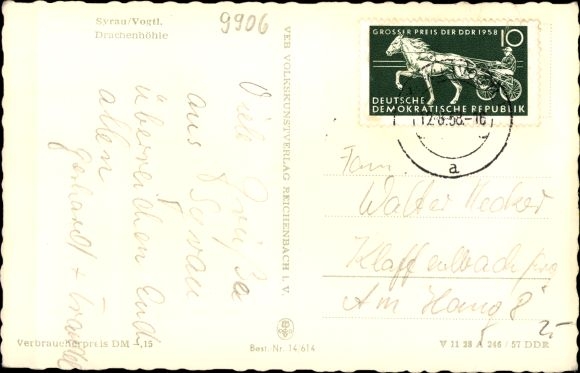 Syrau/Vogtl.
Drachenhöhle
9906
Viele Grüße
aus Syrau
überreichen Euch
allen
Gerhardt + Traudel
VEB VOLKSKUNSTVERLAG REICHENBACH i. V.
GROSSER PREIS DER DDR 1958 10
DEUTSCHE
DEMOKRATISCHE REPUBLIK
12.8.58.-16
a
Fam.
Walter Hecker
Klaffenbach
Am Hang 8
2,-
Verbraucherpreis DM -,15
Best. Nr. 14 614
V 11 28 A 246 / 57 DDR